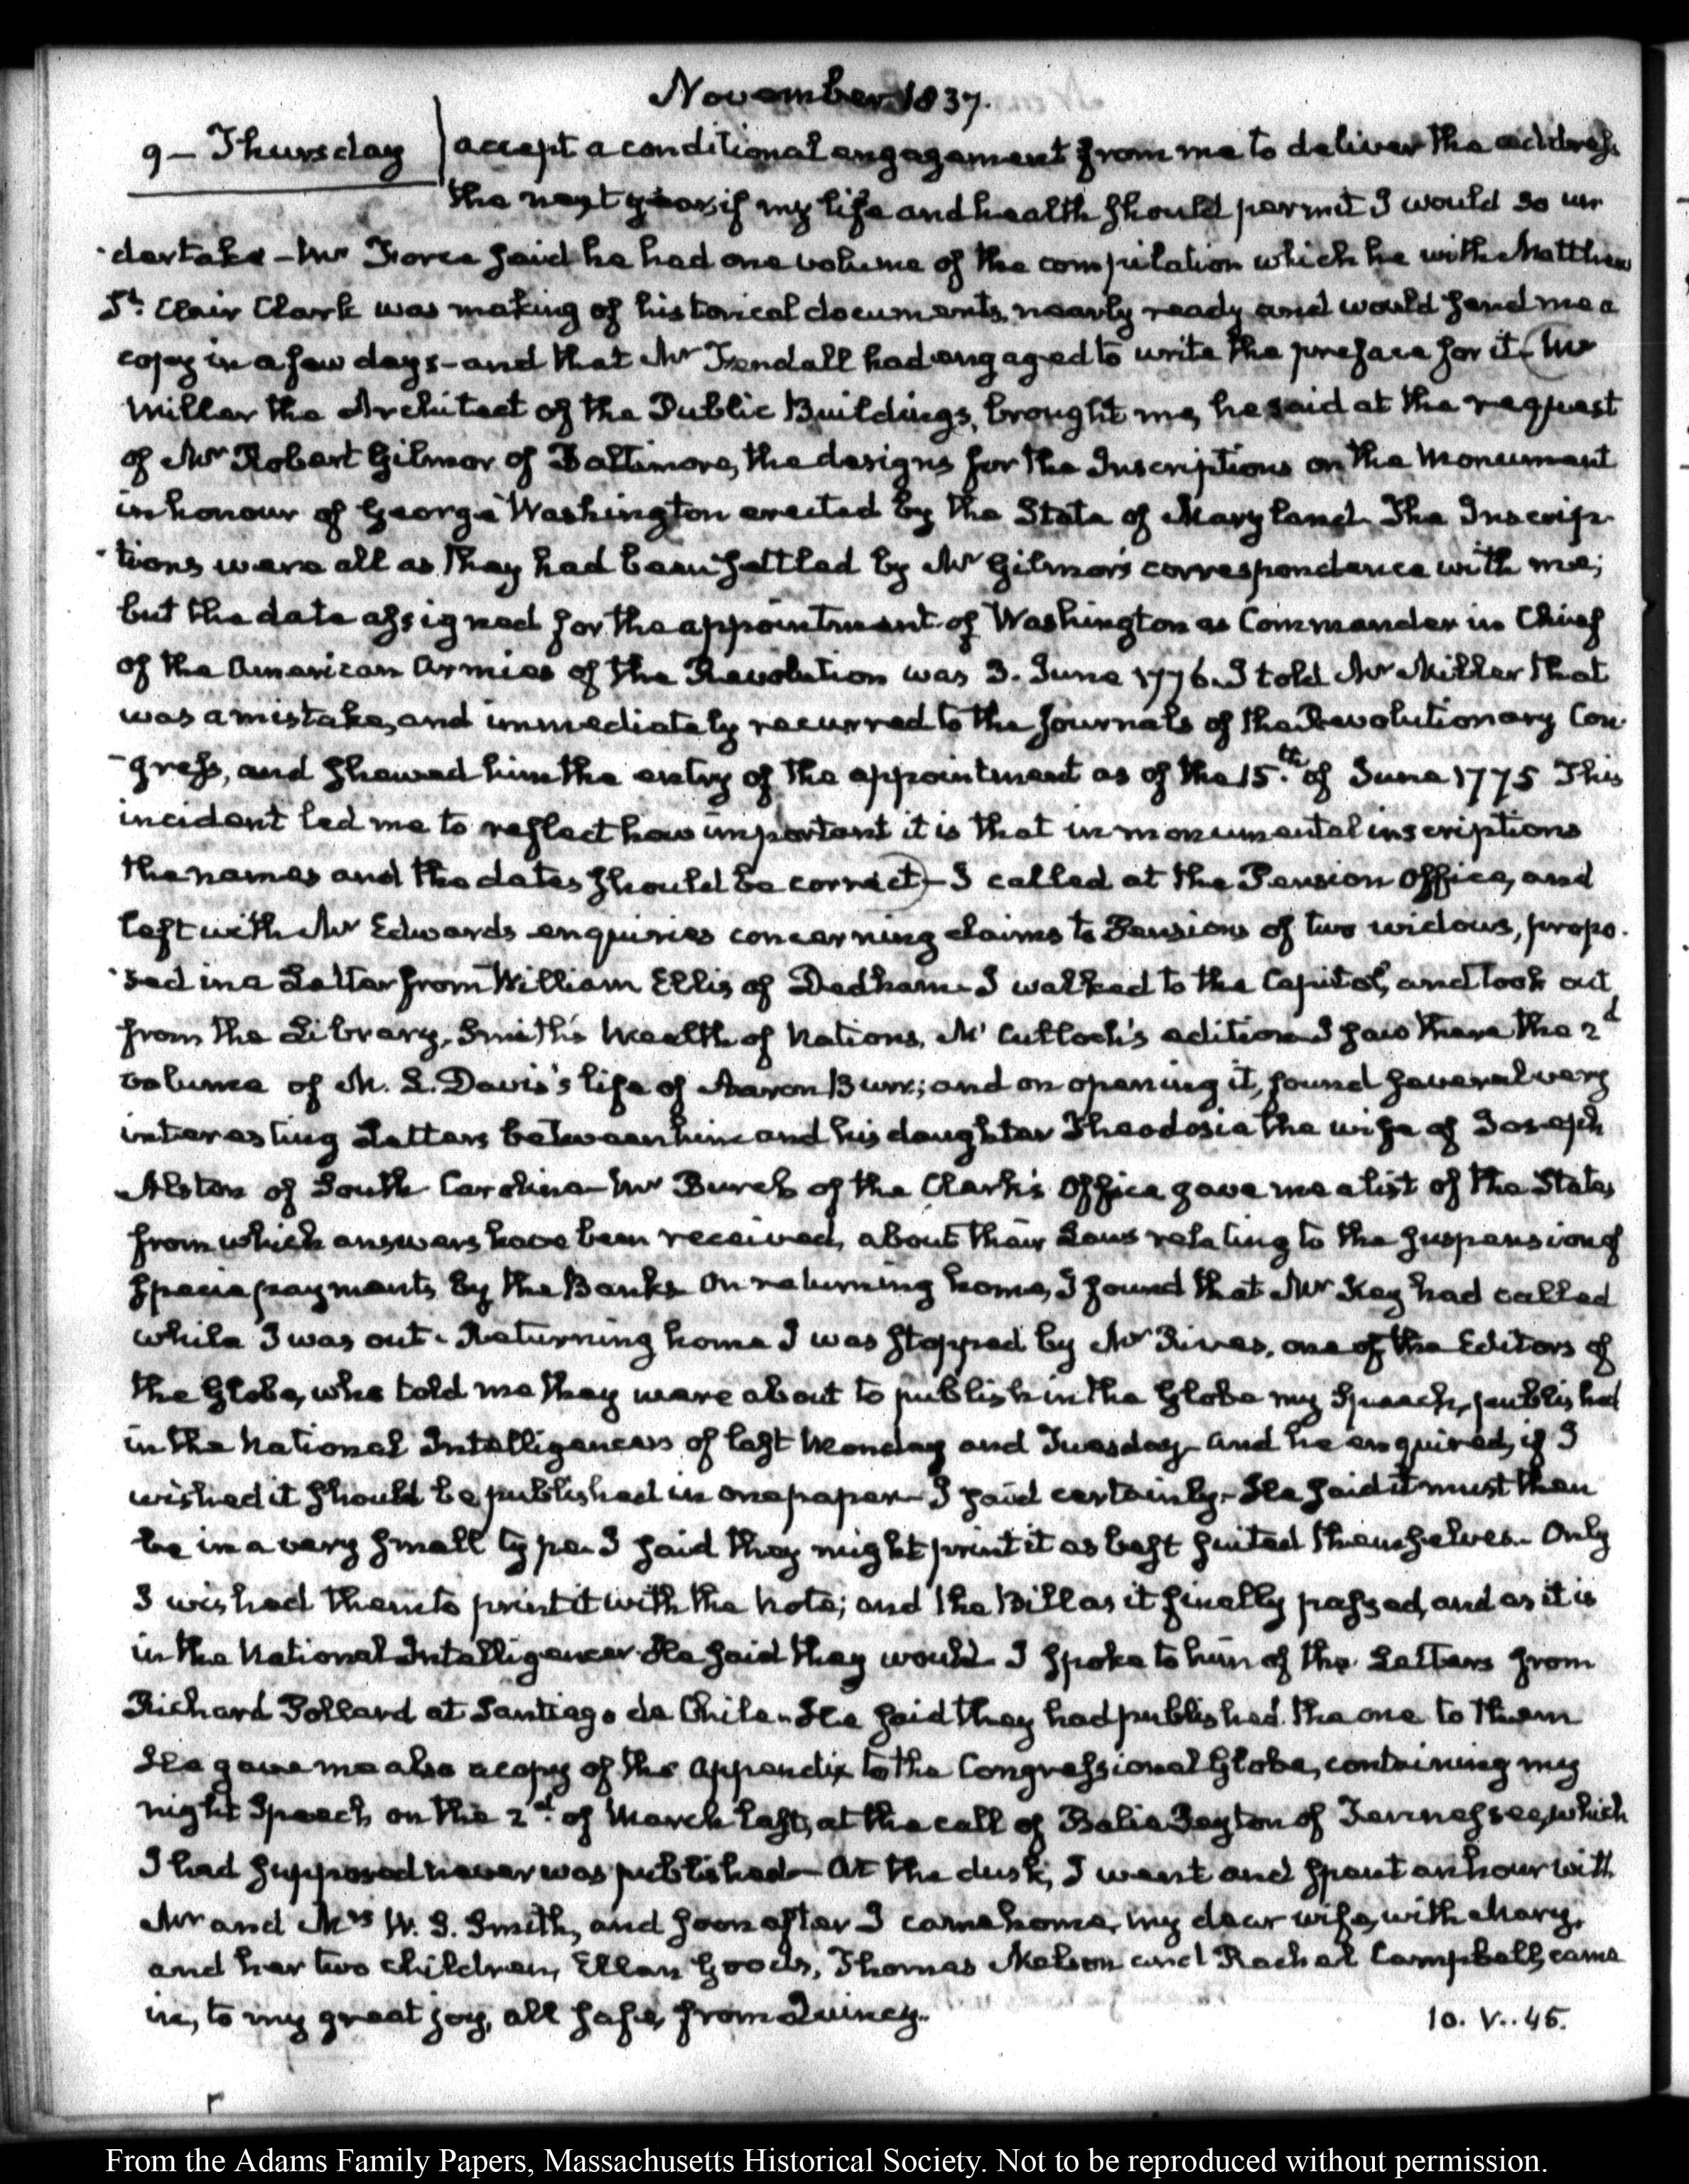 November 1837.
9 – Thursday
accept a conditional engagement from me to deliver the address
the next year if my life and health should permit I would so un
-dertake – Mr Force said he had one volume of the compilation which he with Matthew
St. Clair Clark was making of historical documents, nearly ready and would send me a
copy in a few days – and that Mr Kendall had engaged to write the preface for it – (Mr
Miller the Architect of the Public Buildings, brought me, he said at the request
of Mr Robert Gilmor of Baltimore, the designs for the Inscriptions on the Monument
in honour of George Washington erected by the State of Maryland. The Inscrip-
-tions were all as they had been settled by Mr Gilmor's correspondence with me;
but the date assigned for the appointment of Washington as Commander in Chief
of the American Armies of the Revolution was 3. June 1776. I told Mr Miller that
was a mistake, and immediately recurred to the Journals of the Revolutionary Con-
-gress, and shewed him the entry of the appointment as of the 15.th of June 1775 This
incident led me to reflect how important it is that in monumental inscriptions
the names and the dates should be correct) – I called at the Pension Office, and
left with Mr Edwards enquiries concerning claims to Pensions of two widows, propo-
-sed in a Letter from William Ellis of Dedham. I walked to the Capitol, and took out
from the Library, Smith's Wealth of Nations, McCulloch's edition. I saw there the 2d
volume of M. L. Davis's life of Aaron Burr; and on opening it, found several very
interesting Letters between him and his daughter Theodosia the wife of Joseph
Alston of South Carolina – Mr Burch of the Clerk's Office gave me a list of the States
from which answers have been received, about their Laws relating to the suspension of
specie payments by the Banks. On returning home, I found that Mr Key had called
while I was out. Returning home I was stopped by Mr Rives, one of the Editors of
the Globe, who told me they were about to publish in the Globe my Speech, published
in the National Intelligencers of last Monday and Tuesday – and he enquired, if I
wished it should be published in one paper – I said certainly – He said it must then
be in a very small type. I said they might print it as best suited themselves. Only
I wished them to print it with the Note; and the Bill as it finally passed, and as it is
in the National Intelligencer. He said they would. I spoke to him of the Letters from
Richard Pollard at Santiago de Chile. He said they had published the one to them
He gave me also a copy of the Appendix to the Congressional Globe, containing my
night Speech on the 2d. of March last, at the call of Balie Peyton of Tennessee, which
I had supposed never was published – At the dusk, I went and spent an hour with
Mr and Mrs W. S. Smith, and soon after I came home, my dear wife, with Mary,
and her two children, Ellen Goods, Thomas Nelson and Rachel Campbell, came
in, to my great joy, all safe, from Quincy.
10. V..45.
From the Adams Family Papers, Massachusetts Historical Society. Not to be reproduced without permission.